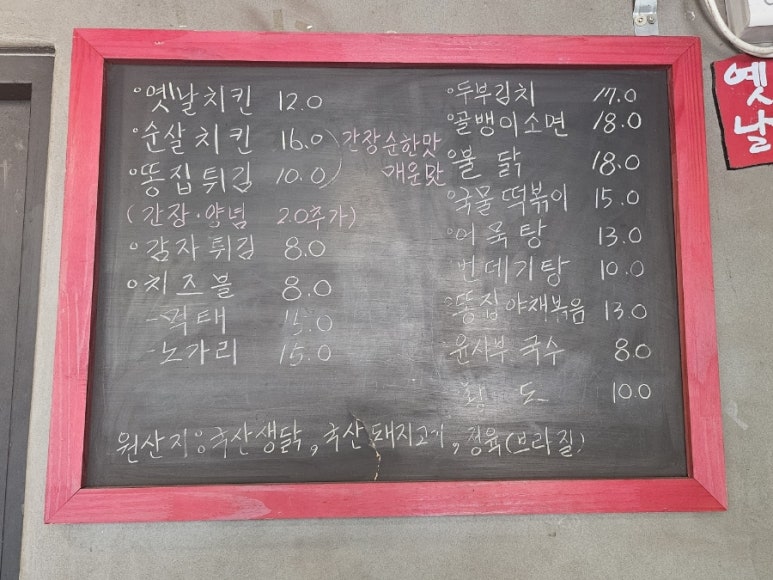 °옛날치킨 12.0
°순살치킨 16.0
°똥집튀김 10.0
간장순한맛
매운맛
(간장·양념 2.0추가)
°감자튀김 8.0
°치즈볼 8.0
-먹태 15.0
-노가리 15.0
°두부김치 17.0
°골뱅이소면 18.0
°불닭 18.0
°국물떡볶이 15.0
°어묵탕 13.0
번데기탕 10.0
°똥집야채볶음 13.0
°윤사부국수 8.0
황도 10.0
원산지:국산생닭, 국산돼지고기, 정육(브라질)
옛
날